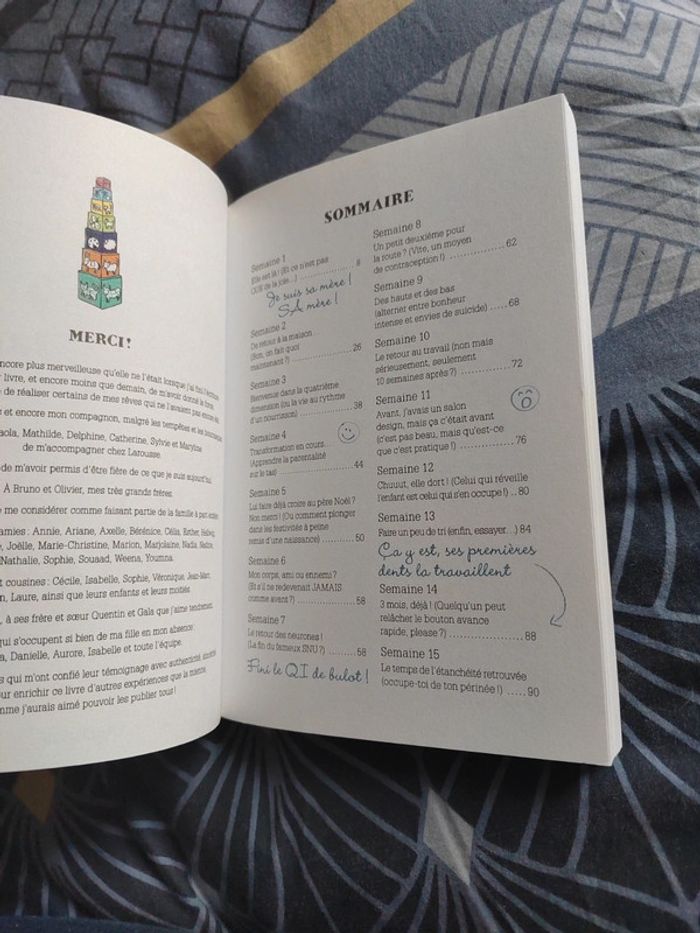 MERCI!
encore plus merveilleuse qu'elle ne l'était lorsque j'ai fini l'écriture
livre, et encore moins que demain, de m'avoir donné la force
de réaliser certains de mes rêves qui ne l'avaient pas encore été.
et encore mon compagnon, malgré les tempêtes et les
Mathilde, Delphine, Catherine, Sylvie et Maryline
de m'accompagner chez Larousse.
de m'avoir permis d'être fière de ce que je suis aujourd'hui.
À Bruno et Olivier, mes très grands frères.
me considérer comme faisant partie de la famille à part entière
amies : Annie, Ariane, Axelle, Bérénice, Célia, Esther,
Joëlle, Marie-Christine, Marion, Marjolaine, Nadia,
Nathalie, Sophie, Souaad, Weena, Youmna.
t cousines : Cécile, Isabelle, Sophie, Véronique, Jean-Marc,
Laure, ainsi que leurs enfants et leurs moitiés.
à ses frère et sœur Quentin et Gala que j'aime tendrement.
qui s'occupent si bien de ma fille en mon absence :
Danielle, Aurore, Isabelle et toute l'équipe.
s qui m'ont confié leur témoignage avec authenticité,
our enrichir ce livre d'autres expériences que la mienne.
mme j'aurais aimé pouvoir les publier tous !
SOMMAIRE
Semaine 1
Elle est là ! (Et ce n'est pas
QUE de la joie...) 8
Je suis sa mère !
SA mère !
Semaine 2
De retour à la maison...
(Bon, on fait quoi
maintenant ?) 26
Semaine 3
Bienvenue dans la quatrième
dimension (ou la vie au rythme
d'un nourrisson) 38
Semaine 4
Transformation en cours...
(Apprendre la parentalité
sur le tas) 44
Semaine 5
Lui faire déjà croire au père Noël ?
Non merci ! (Ou comment plonger
dans les festivités à peine
remis d'une naissance) 50
Semaine 6
Mon corps, ami ou ennemi ?
(Et s'il ne redevenait JAMAIS
comme avant ?) 58
Semaine 7
Le retour des neurones !
(La fin du fameux SNU ?) 58
Fini le QI de bulot !
Semaine 8
Un petit deuxième pour
la route ? (Vite, un moyen
de contraception !) 62
Semaine 9
Des hauts et des bas
(alterner entre bonheur
intense et envies de suicide) 68
Semaine 10
Le retour au travail (non mais
sérieusement, seulement
10 semaines après ?) 72
Semaine 11
Avant, j'avais un salon
design, mais ça c'était avant
(c'est pas beau, mais qu'est-ce
que c'est pratique !) 76
Semaine 12
Chuuut, elle dort ! (Celui qui réveille
l'enfant est celui qui s'en occupe !) .. 80
Semaine 13
Faire un peu de tri (enfin, essayer...) 84
Ça y est, ses premières
dents la travaillent
Semaine 14
3 mois, déjà ! (Quelqu'un peut
relâcher le bouton avance
rapide, please ?) 88
Semaine 15
Le temps de l'étanchéité retrouvée
(occupe-toi de ton périnée !) ..... 90